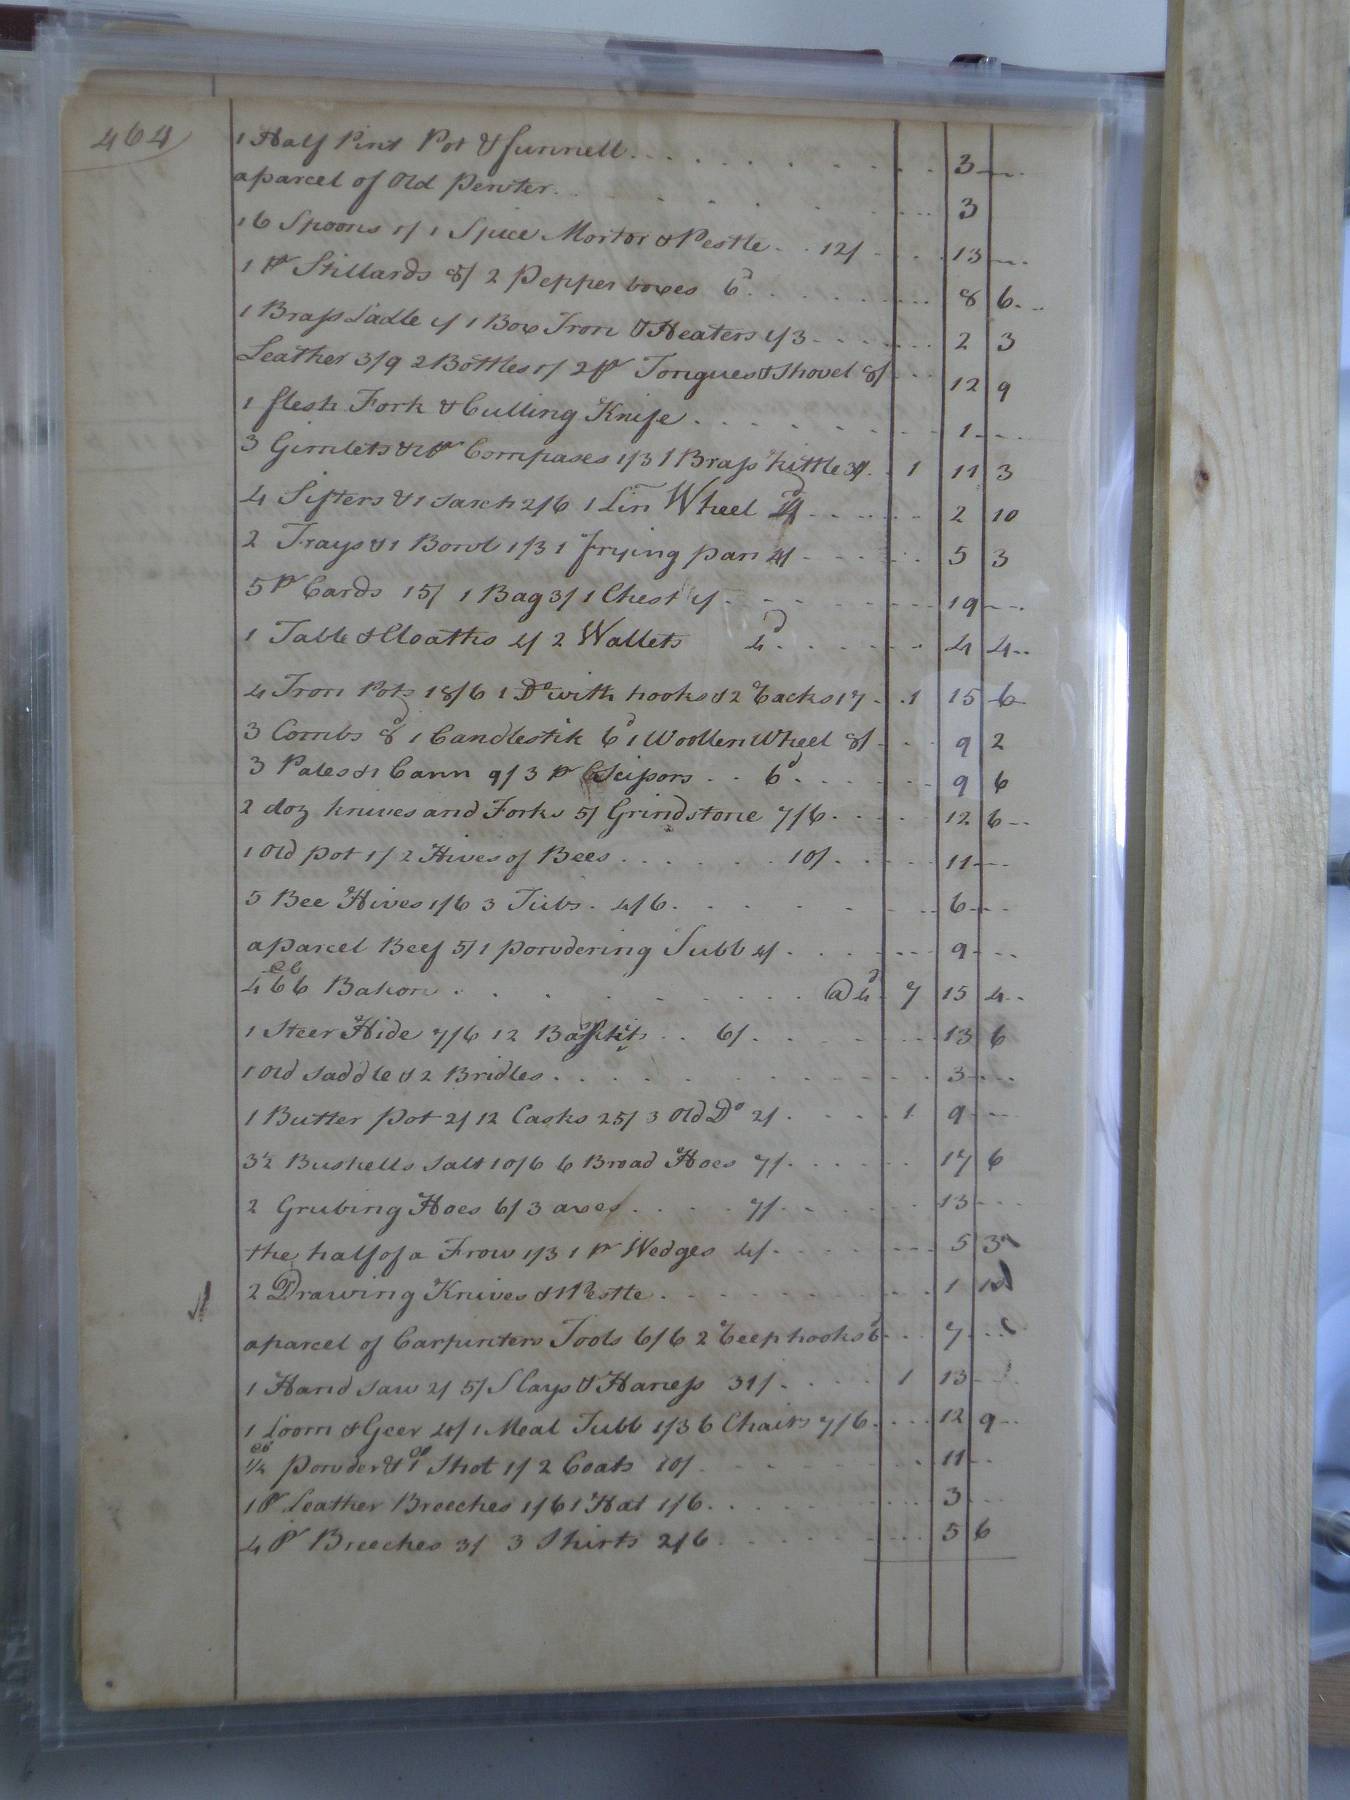 464
1 Half Pint Pot & funnell . . . 3 —
a parcel of Old Pewter . . . 3
16 Spoons 1/ 1 Spice Mortor & Pestle . . 12/ . . 13 —
1 pr Stillards 8/ 2 Pepper boxes 6d . . . 8 6
1 Brass Ladle 1/ 1 Box Iron & Heaters 1/3 . . . 2 3
Leather 3/9 2 Bottles 1/ 2 pr Tongues & Shovel 8/ . . 12 9
1 flesh Fork & Cutting Knife . . . 1 —
3 Gimlets & 1 pr Compases 1/3 1 Brass Kittle 30/ . 1 11 3
4 Sifters & 1 Sarch 2/6 1 Lin Wheel 4d . . . 2 10
2 Trays & 1 Bowl 1/3 1 frying pan 4/ . . . 5 3
5 pr Cards 15/ 1 Bag 3/ 1 Chest 1/ . . . 19 —
1 Table & Cloaths 4/ 2 Wallets 4d . . . 4 4
4 Iron Pots 18/6 1 Do with hooks & 2 Racks 17 . . 1 15 6
3 Combs 8d 1 Candlestik 6d 1 Woollen Wheel 8/ . . 9 2
3 Pales & 1 Cann 9/ 3 pr Scissors . . 6d . . . 9 6
2 doz knives and Forks 5/ Grindstone 7/6 . . . 12 6
1 Old pot 1/ 2 Hives of Bees . . . 10/ . . 11 —
5 Bee Hives 1/6 3 Tubs . 4/6 . . . 6 —
a parcel Beef 5/ 1 powdering Tubb 4/ . . . 9 —
466 lb Bakon . . . @ 4d . 7 15 4
1 Steer Hide 7/6 12 Baskits . . 6/ . . . 13 6
1 Old Saddle & 2 Bridles . . . 3 —
1 Butter Pot 2/ 12 Casks 25/ 3 Old Do 2/ . . . 1 9 —
3½ Bushells Salt 10/6 6 Broad Hoes 7/ . . . 17 6
2 Grubing Hoes 6/ 3 axes . . . 7/ . . . 13 —
the half of a Frow 1/3 1 pr Wedges 4/ . . . 5 3
2 Drawing Knives & 1 Pestle . . . 1 10
a parcel of Carpinters Tools 6/6 2 Reephooks 6d . . 7 —
1 Hand Saw 2/ 5/ Slays & Harness 31/ . . . 1 13 —
1 Loom & Geer 4/ 1 Meal Tubb 1/3 6 Chairs 7/6 . . 12 9
½ lb powder & Shot 1/ 2 Coats 10/ . . . 11 —
1 pr Leather Breeches 1/6 1 Hat 1/6 . . . 3 —
4 pr Breeches 3/ 3 Shirts 2/6 . . . 5 6